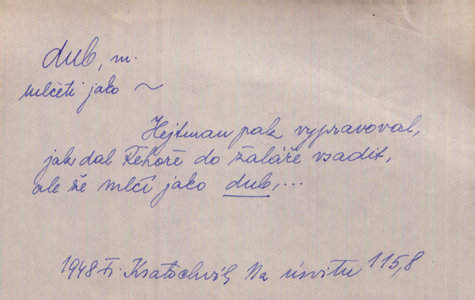 dub, m.
mlčeti jako ~
Hejtman pak vypravoval,
jak dal Řehoře do žaláře vsadit,
ale že mlčí jako dub,...
1948 Fr. Kratochvíl, Na úsvitu 115,8